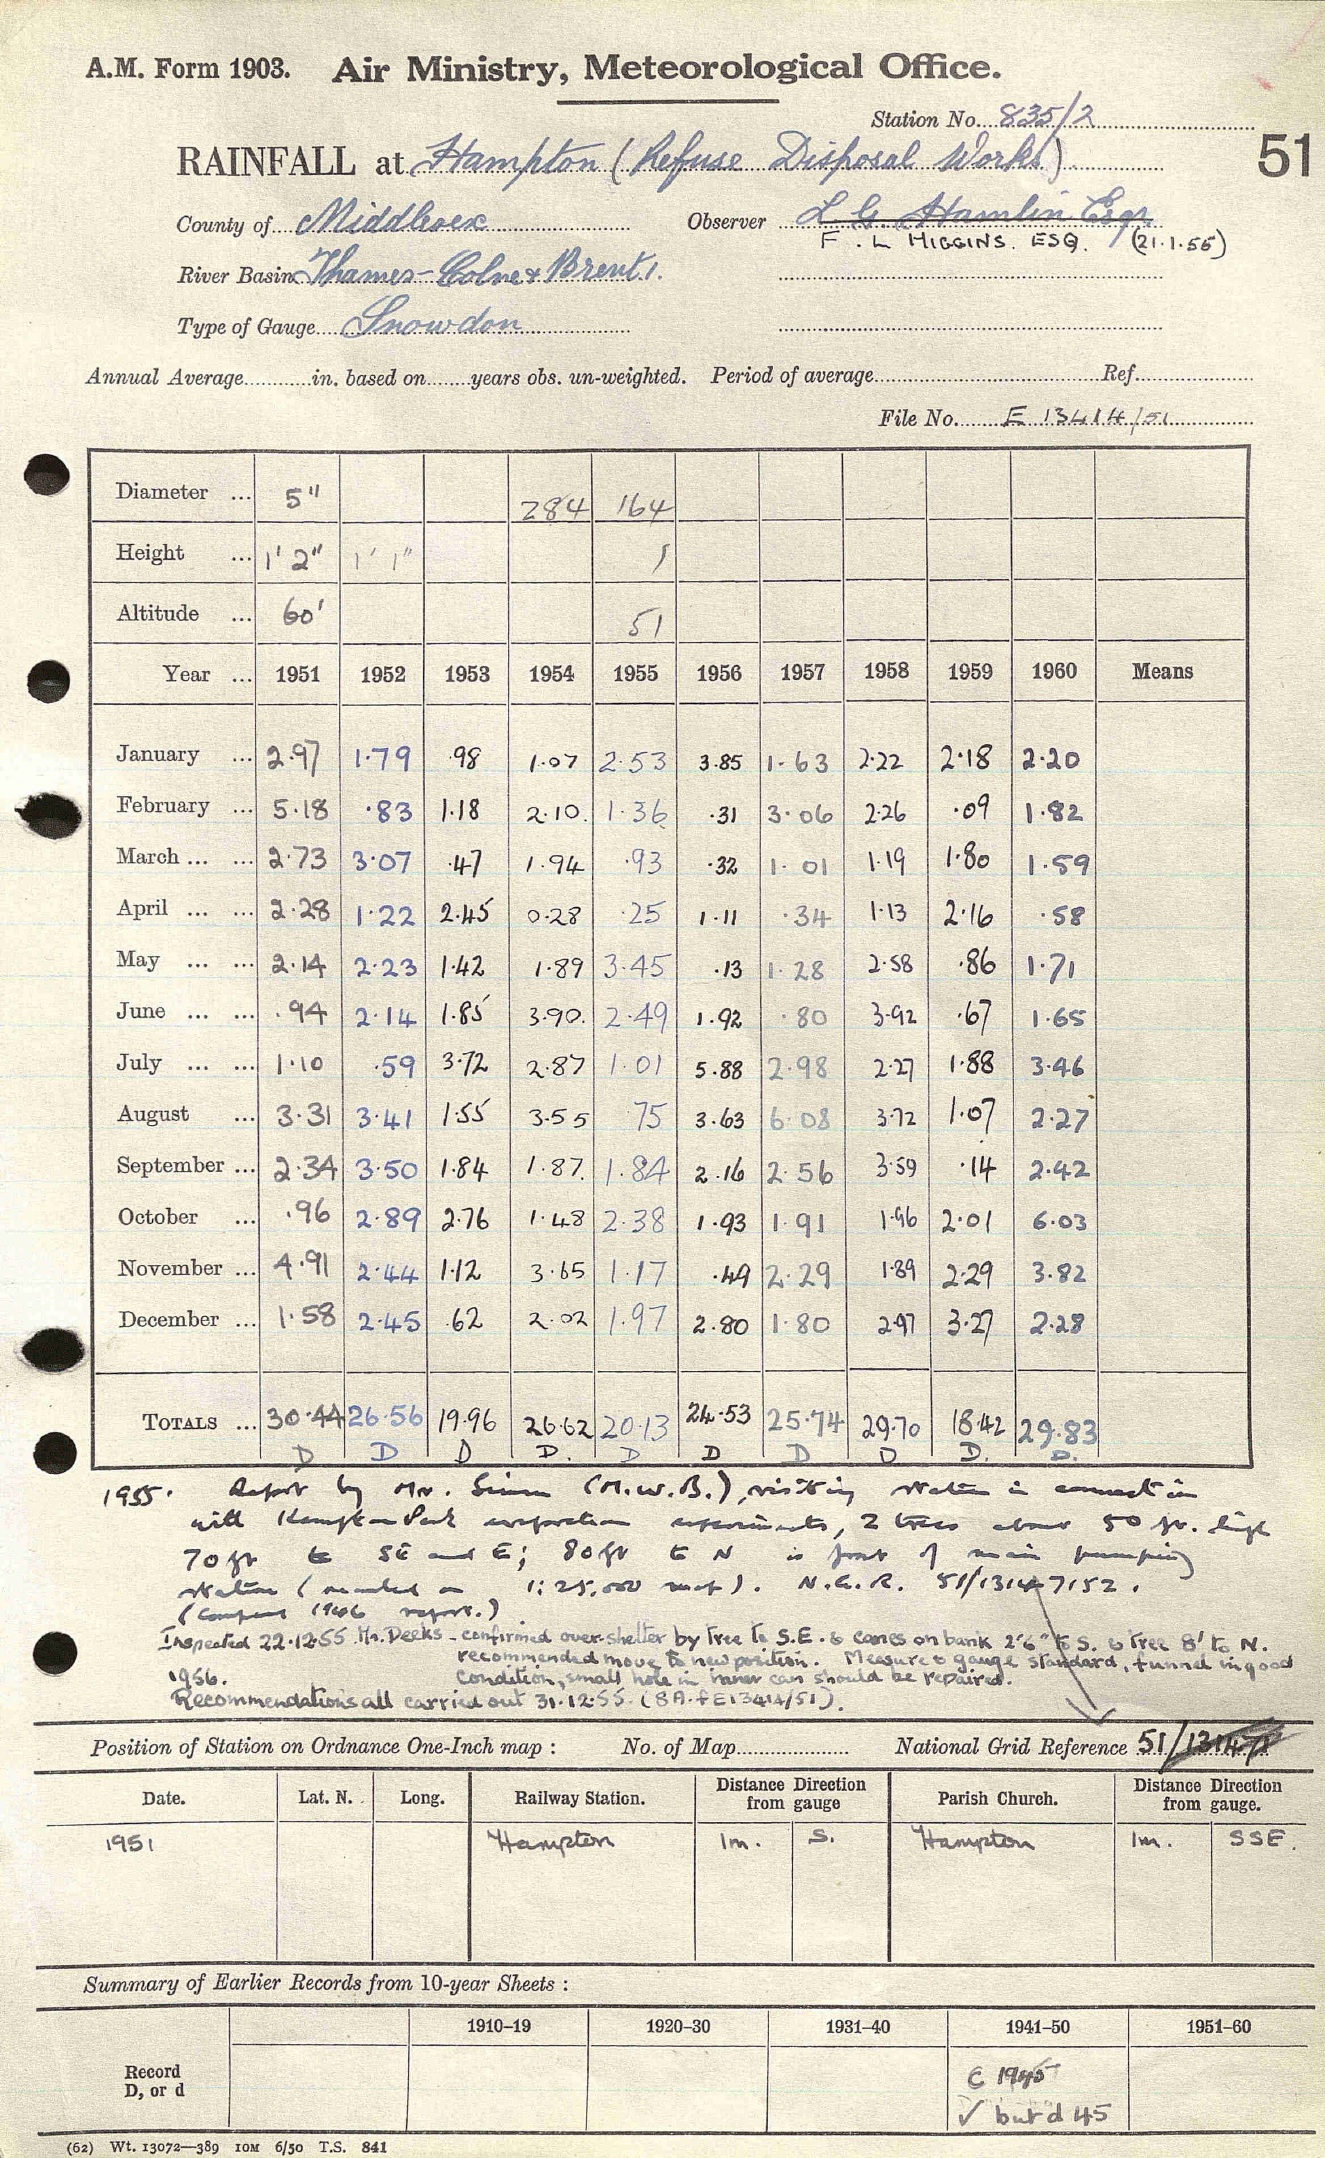 A.M. Form 1903. Air Ministry, Meteorological Office.
Station No. 835/2
51
RAINFALL at Hampton (Refuse Disposal Works)
County of Middlesex Observer L. G. Hamlin Esqr.
F. L HIGGINS. ESQ. (21.1.55)
River Basin Thames - Colne & Brent.
Type of Gauge Snowdon
Annual Average in. based on years obs. un-weighted. Period of average Ref.
File No. E 13414/51
Diameter ... 5" 284 164
Height ... 1' 2" 1' 1" 1
Altitude ... 60' 51
Year ... 1951 1952 1953 1954 1955 1956 1957 1958 1959 1960 Means
January ... 2.97 1.79 .98 1.07 2.53 3.85 1.63 2.22 2.18 2.20
February ... 5.18 .83 1.18 2.10. 1.36 .31 3.06 2.26 .09 1.82
March ... ... 2.73 3.07 .47 1.94 .93 .32 1.01 1.19 1.80 1.59
April ... ... 2.28 1.22 2.45 0.28 .25 1.11 .34 1.13 2.16 .58
May ... ... 2.14 2.23 1.42 1.89 3.45 .13 1.28 2.58 .86 1.71
June ... ... .94 2.14 1.85 3.90. 2.49 1.92 .80 3.92 .67 1.65
July ... ... 1.10 .59 3.72 2.87 1.01 5.88 2.98 2.27 1.88 3.46
August ... 3.31 3.41 1.55 3.55 75 3.63 6.08 3.72 1.07 2.27
September ... 2.34 3.50 1.84 1.87. 1.84 2.16 2.56 3.59 .14 2.42
October ... .96 2.89 2.76 1.48 2.38 1.93 1.91 1.96 2.01 6.03
November ... 4.91 2.44 1.12 3.65 1.17 .49 2.29 1.89 2.29 3.82
December ... 1.58 2.45 .62 2.02 1.97 2.80 1.80 2.97 3.27 2.28
TOTALS ... 30.44 26.56 19.96 26.62 20.13 24.53 25.74 29.70 18.42 29.83
D D D D. D D D D D. D.
1955. Report by Mr. (M.W.B.), visiting station in connection
with Kempton Park evaporation experiments, 2 trees about 50 ft. high
70 ft to SE and E; 80 ft to N is front of main pumping
station (marked on 1:25,000 map). N.G.R. 51/1314 7152.
(Compare 1946 report.)
Inspected 22.12.55 Mr. Deeks - confirmed over-shelter by tree to S.E. & canes on bank 2'6" to S. & tree 8' to N.
recommended move to new position. Measure & gauge standard, funnel in good
1956. condition, small hole in inner can should be repaired.
Recommendations all carried out 31.12.55. (8A.f E13414/51).
Position of Station on Ordnance One-Inch map : No. of Map National Grid Reference 51/
Date. Lat. N. Long. Railway Station. Distance Direction from gauge Parish Church. Distance Direction from gauge.
1951 Hampton 1m. S. Hampton 1m. SSE.
Summary of Earlier Records from 10-year Sheets :
1910–19 1920–30 1931–40 1941–50 1951–60
Record D, or d C 1945
✓ but d 45
(62) Wt. 13072—389 10M 6/50 T.S. 841